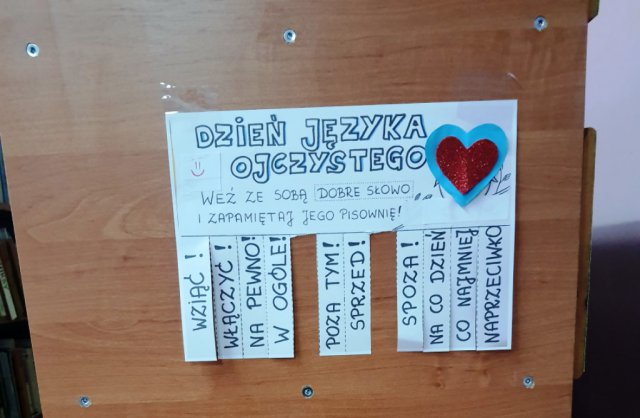 DZIEŃ JĘZYKA
OJCZYSTEGO
WEŹ ZE SOBĄ DOBRE SŁOWO
I ZAPAMIĘTAJ JEGO PISOWNIĘ!
WZIĄĆ!
WŁĄCZYĆ!
NA PEWNO!
W OGÓLE!
POZA TYM!
SPRZED!
SPOZA!
NA CO DZIEŃ
CO NAJMNIEJ
NAPRZECIWKO